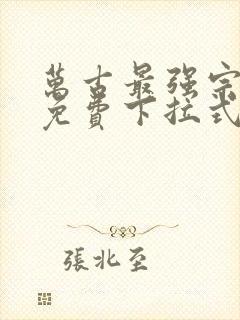 萬古最强宗
免費下拉式
張北至